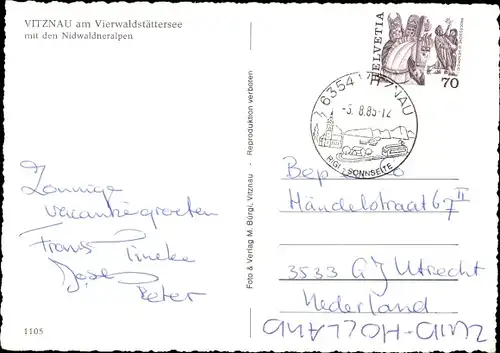 VITZNAU am Vierwaldstättersee
mit den Nidwaldneralpen
HELVETIA
70
6354 VITZNAU
-5. 8.85-12
RIGI - SONNSEITE
Zonnige
vacantiegroeten
Frans Tineke
José
Peter
Foto & Verlag M. Bürgi, Vitznau - Reproduktion verboten
Bep
Händelstraat 67 II
3533 GJ Utrecht
Nederland
ZUID-HOLLAND
1105